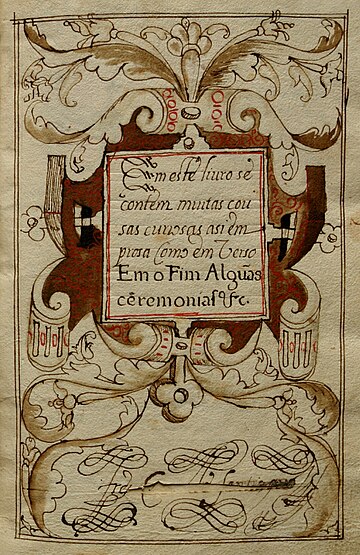 Em este liuro se
contem muitas cou
sas curiosas asi em
prosa como em Verso
Em o Fim Algũas
cẽremonias &c.